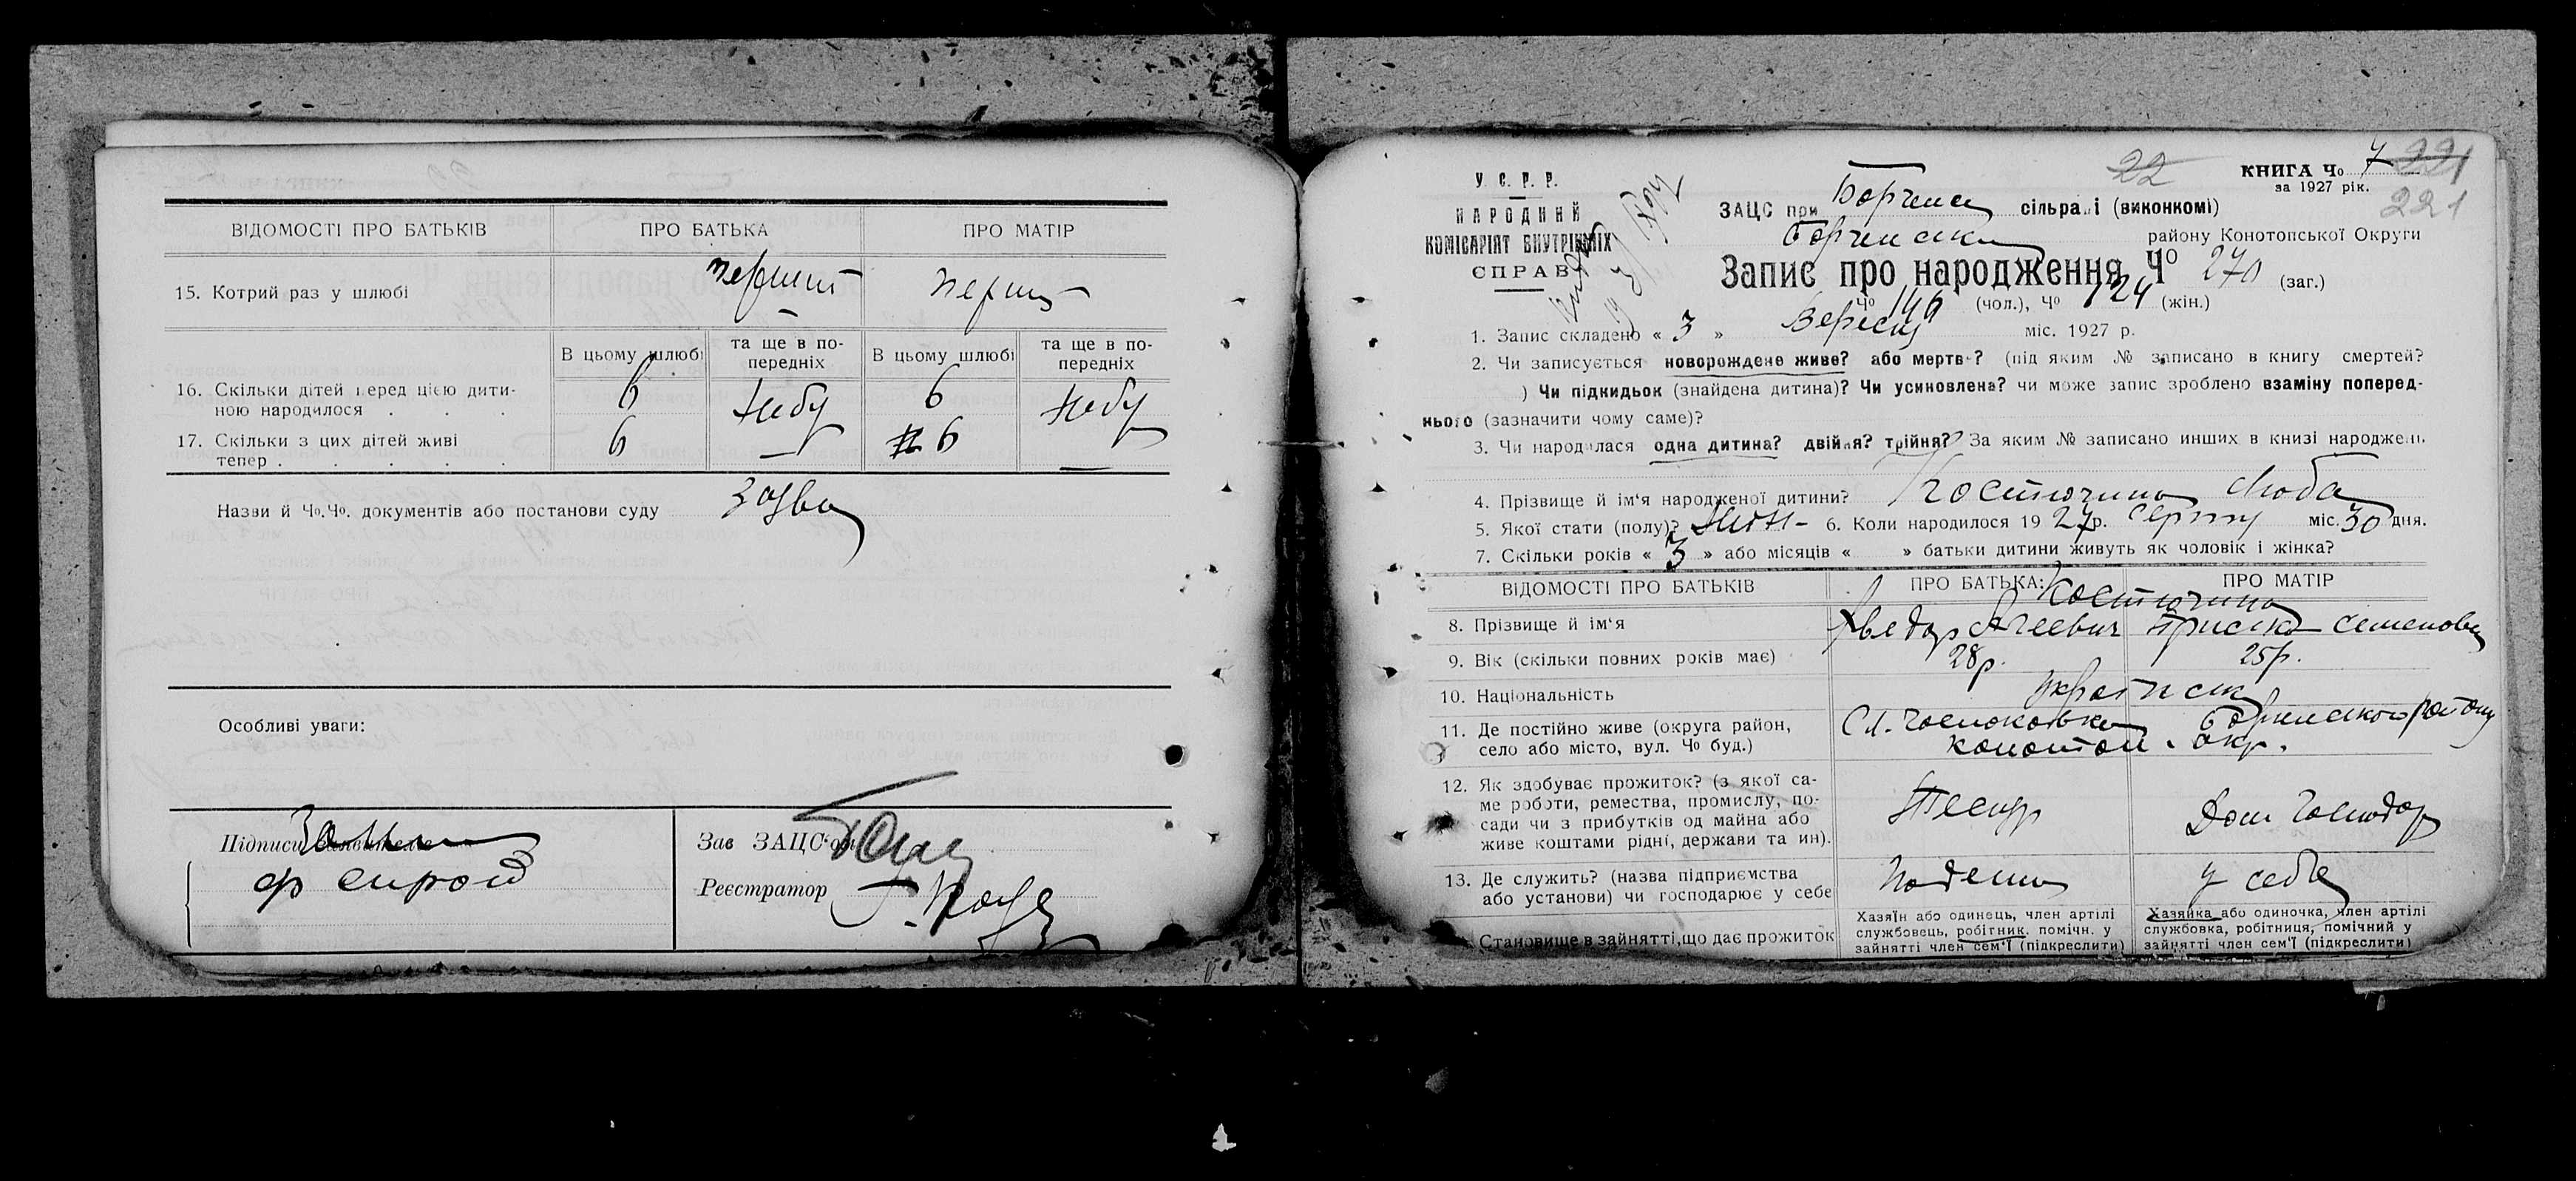 ВІДОМОСТІ ПРО БАТЬКІВ ПРО БАТЬКА ПРО МАТІР
15. Котрий раз у шлюбі перший перший
В цьому шлюбі та ще в попередніх В цьому шлюбі та ще в попередніх
16. Скільки дітей перед цією дити-
ною народилося . . . 6 Небу 6 Небу
17. Скільки з цих дітей живі
тепер . . . . . 6 — 6 —
Назви й Чо.Чо. документів або постанови суду
Особливі уваги:
Підписи
Зав ЗАЦС'ом
Реєстратор
22
КНИГА Чо 7 221
за 1927 рік.
221
У. С. Р. Р.
НАРОДНИЙ
КОМІСАРІЯТ ВНУТРІШНІХ
СПРАВ
ЗАЦС при сільраді (виконкомі)
району Конотопської Округи
Запис про народження Чо 270 (заг.)
Чо 146 (чол.), Чо 124 (жін.)
1. Запис складено « 3 » Вересня міс. 1927 р.
2. Чи записується новорождене живе? або мертве? (під яким № записано в книгу смертей?
) Чи підкидьок (знайдена дитина)? Чи усиновлена? чи може запис зроблено взаміну поперед-
нього (зазначити чому саме)?
3. Чи народилася одна дитина? двійня? трійня? За яким № записано инших в книзі народжень
4. Прізвище й ім'я народженої дитини? Костючина Люба
5. Якої стати (полу)? Жін- 6. Коли народилося 1927р. Серпня міс. 30 дня.
7. Скільки років « 3 » або місяців « » батьки дитини живуть як чоловік і жінка?
ВІДОМОСТІ ПРО БАТЬКІВ ПРО БАТЬКА: ПРО МАТІР
Костючина
8. Прізвище й ім'я Приська Семеновна
9. Вік (скільки повних років має) 28р. 25р.
10. Національність
11. Де постійно живе (округа район,
село або місто, вул. Чо буд.) Конотоп. окр.
12. Як здобуває прожиток? (з якої са-
ме роботи, ремества, промислу, по-
сади чи з прибутків од майна або
живе коштами рідні, держави та ин). Тесляр Дом господар
13. Де служить? (назва підприємства
або установи) чи господарює у себе у себе
Становище в зайнятті, що дає прожиток
Хазяїн або одинець, член артілі
службовець, робітник, помічн. у
зайнятті член сем'ї (підкреслити)
Хазяйка або одиночка, член артілі
службовка, робітниця, помічний у
зайнятті член сем'ї (підкреслити)